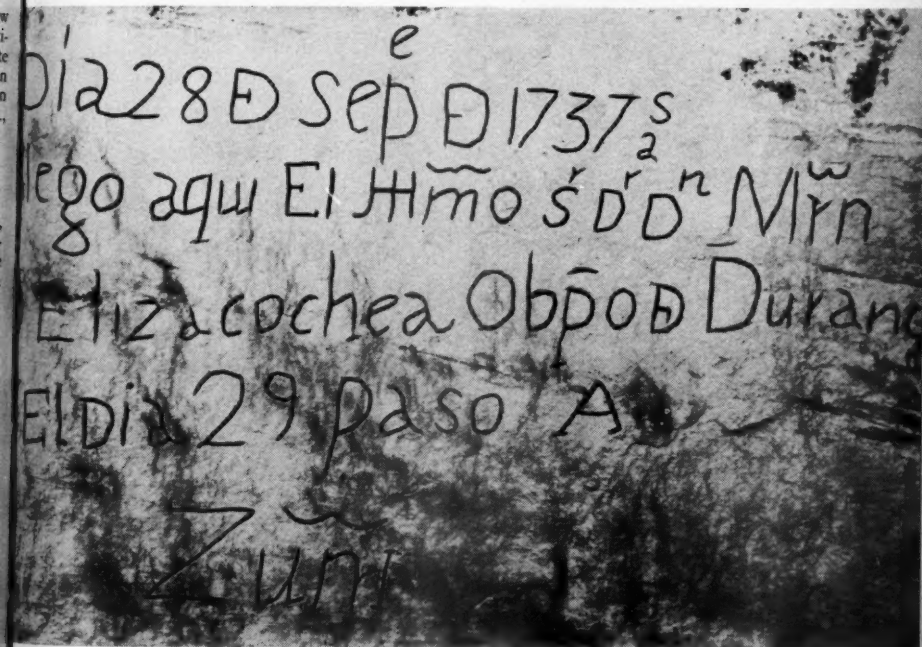 Dia 28 Đ Sepᵉ Đ 1737 aˢ
llego aqui El Illm̃o Sʳ Dʳ Dⁿ Mr̃n
Elizacochea Obp̄o Đ Durang
El Dia 29 paso A
Zuñi